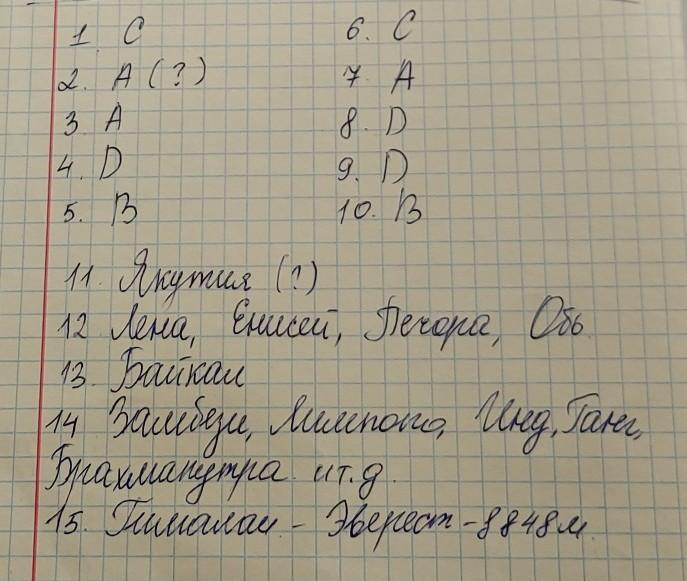 1. C 6. C
2. A (?) 7 A
3. A 8. D
4. D 9. D
5. B 10. B
11. Якутия (?)
12 Лена, Енисей, Печора, Обь
13. Байкал
14 Замбези, Лимпопо, Инд, Ганг,
Брахмапутра и т.д.
15. Гималаи - Эверест - 8848м.